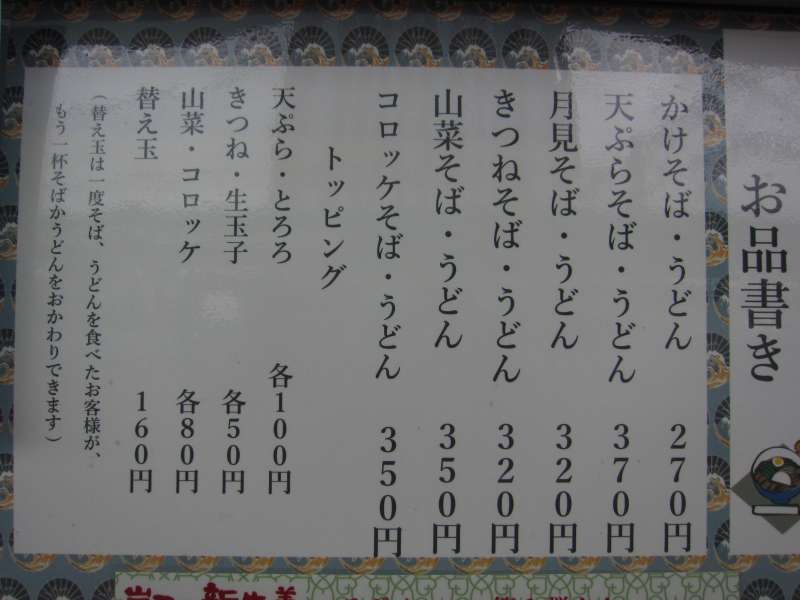 お品書き
かけそば・うどん 270円
天ぷらそば・うどん 370円
月見そば・うどん 320円
きつねそば・うどん 320円
山菜そば・うどん 350円
コロッケそば・うどん 350円
トッピング
天ぷら・とろろ 各100円
きつね・生玉子 各50円
山菜・コロッケ 各80円
替え玉 160円
(替え玉は一度そば、うどんを食べたお客様が、
もう一杯そばかうどんをおかわりできます)